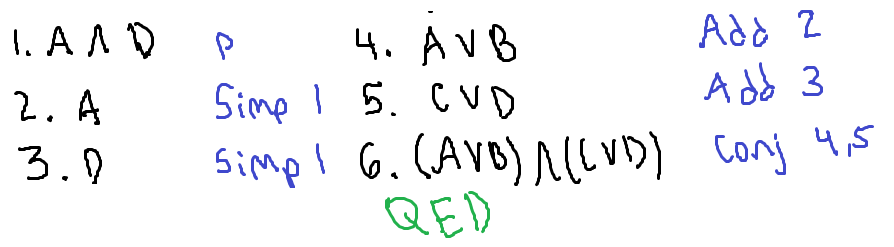 1. A ∧ D P
2. A Simp 1
3. D Simp 1
4. A ∨ B Add 2
5. C ∨ D Add 3
6. (A∨B) ∧ (C∨D) Conj 4,5
QED